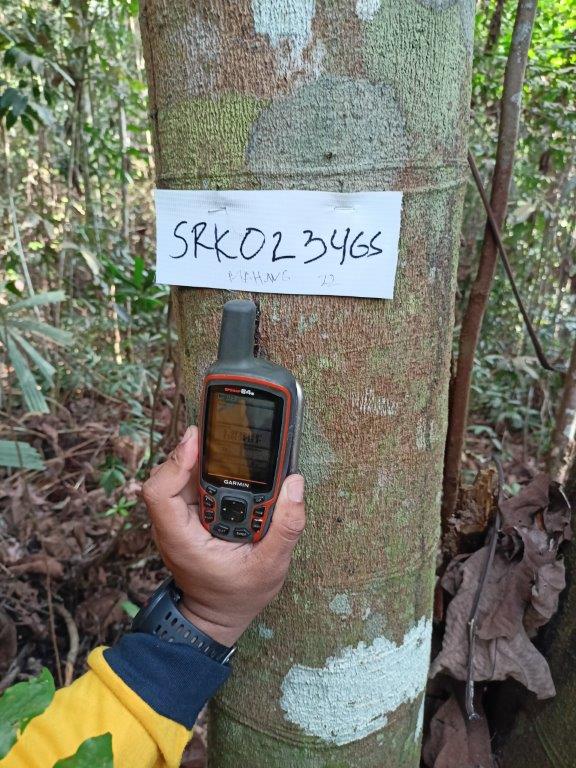 SRK0234GS
MAHANG 22
GPSMAP 64s
GARMIN